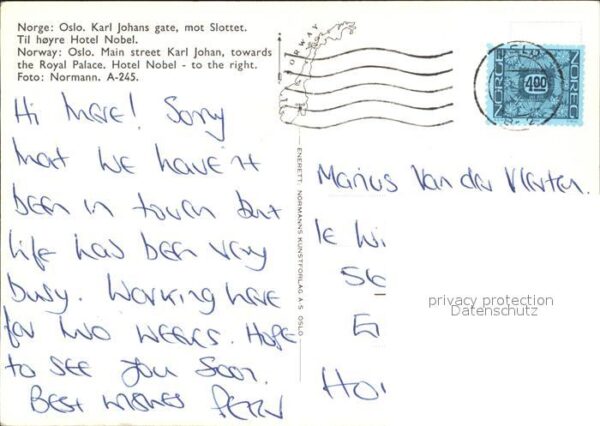 Norge: Oslo. Karl Johans gate, mot Slottet.
Til høyre Hotel Nobel.
Norway: Oslo. Main street Karl Johan, towards
the Royal Palace. Hotel Nobel - to the right.
Foto: Normann. A-245.
NORWAY
OSLO
NORGE
400
NOREG
Hi there! Sorry
that we haven't
been in touch but
life has been very
busy. Working here
for two weeks. Hope
to see you soon.
Best wishes
ENERETT: NORMANNS KUNSTFORLAG A/S OSLO
Marius Van der
privacy protection
Datenschutz